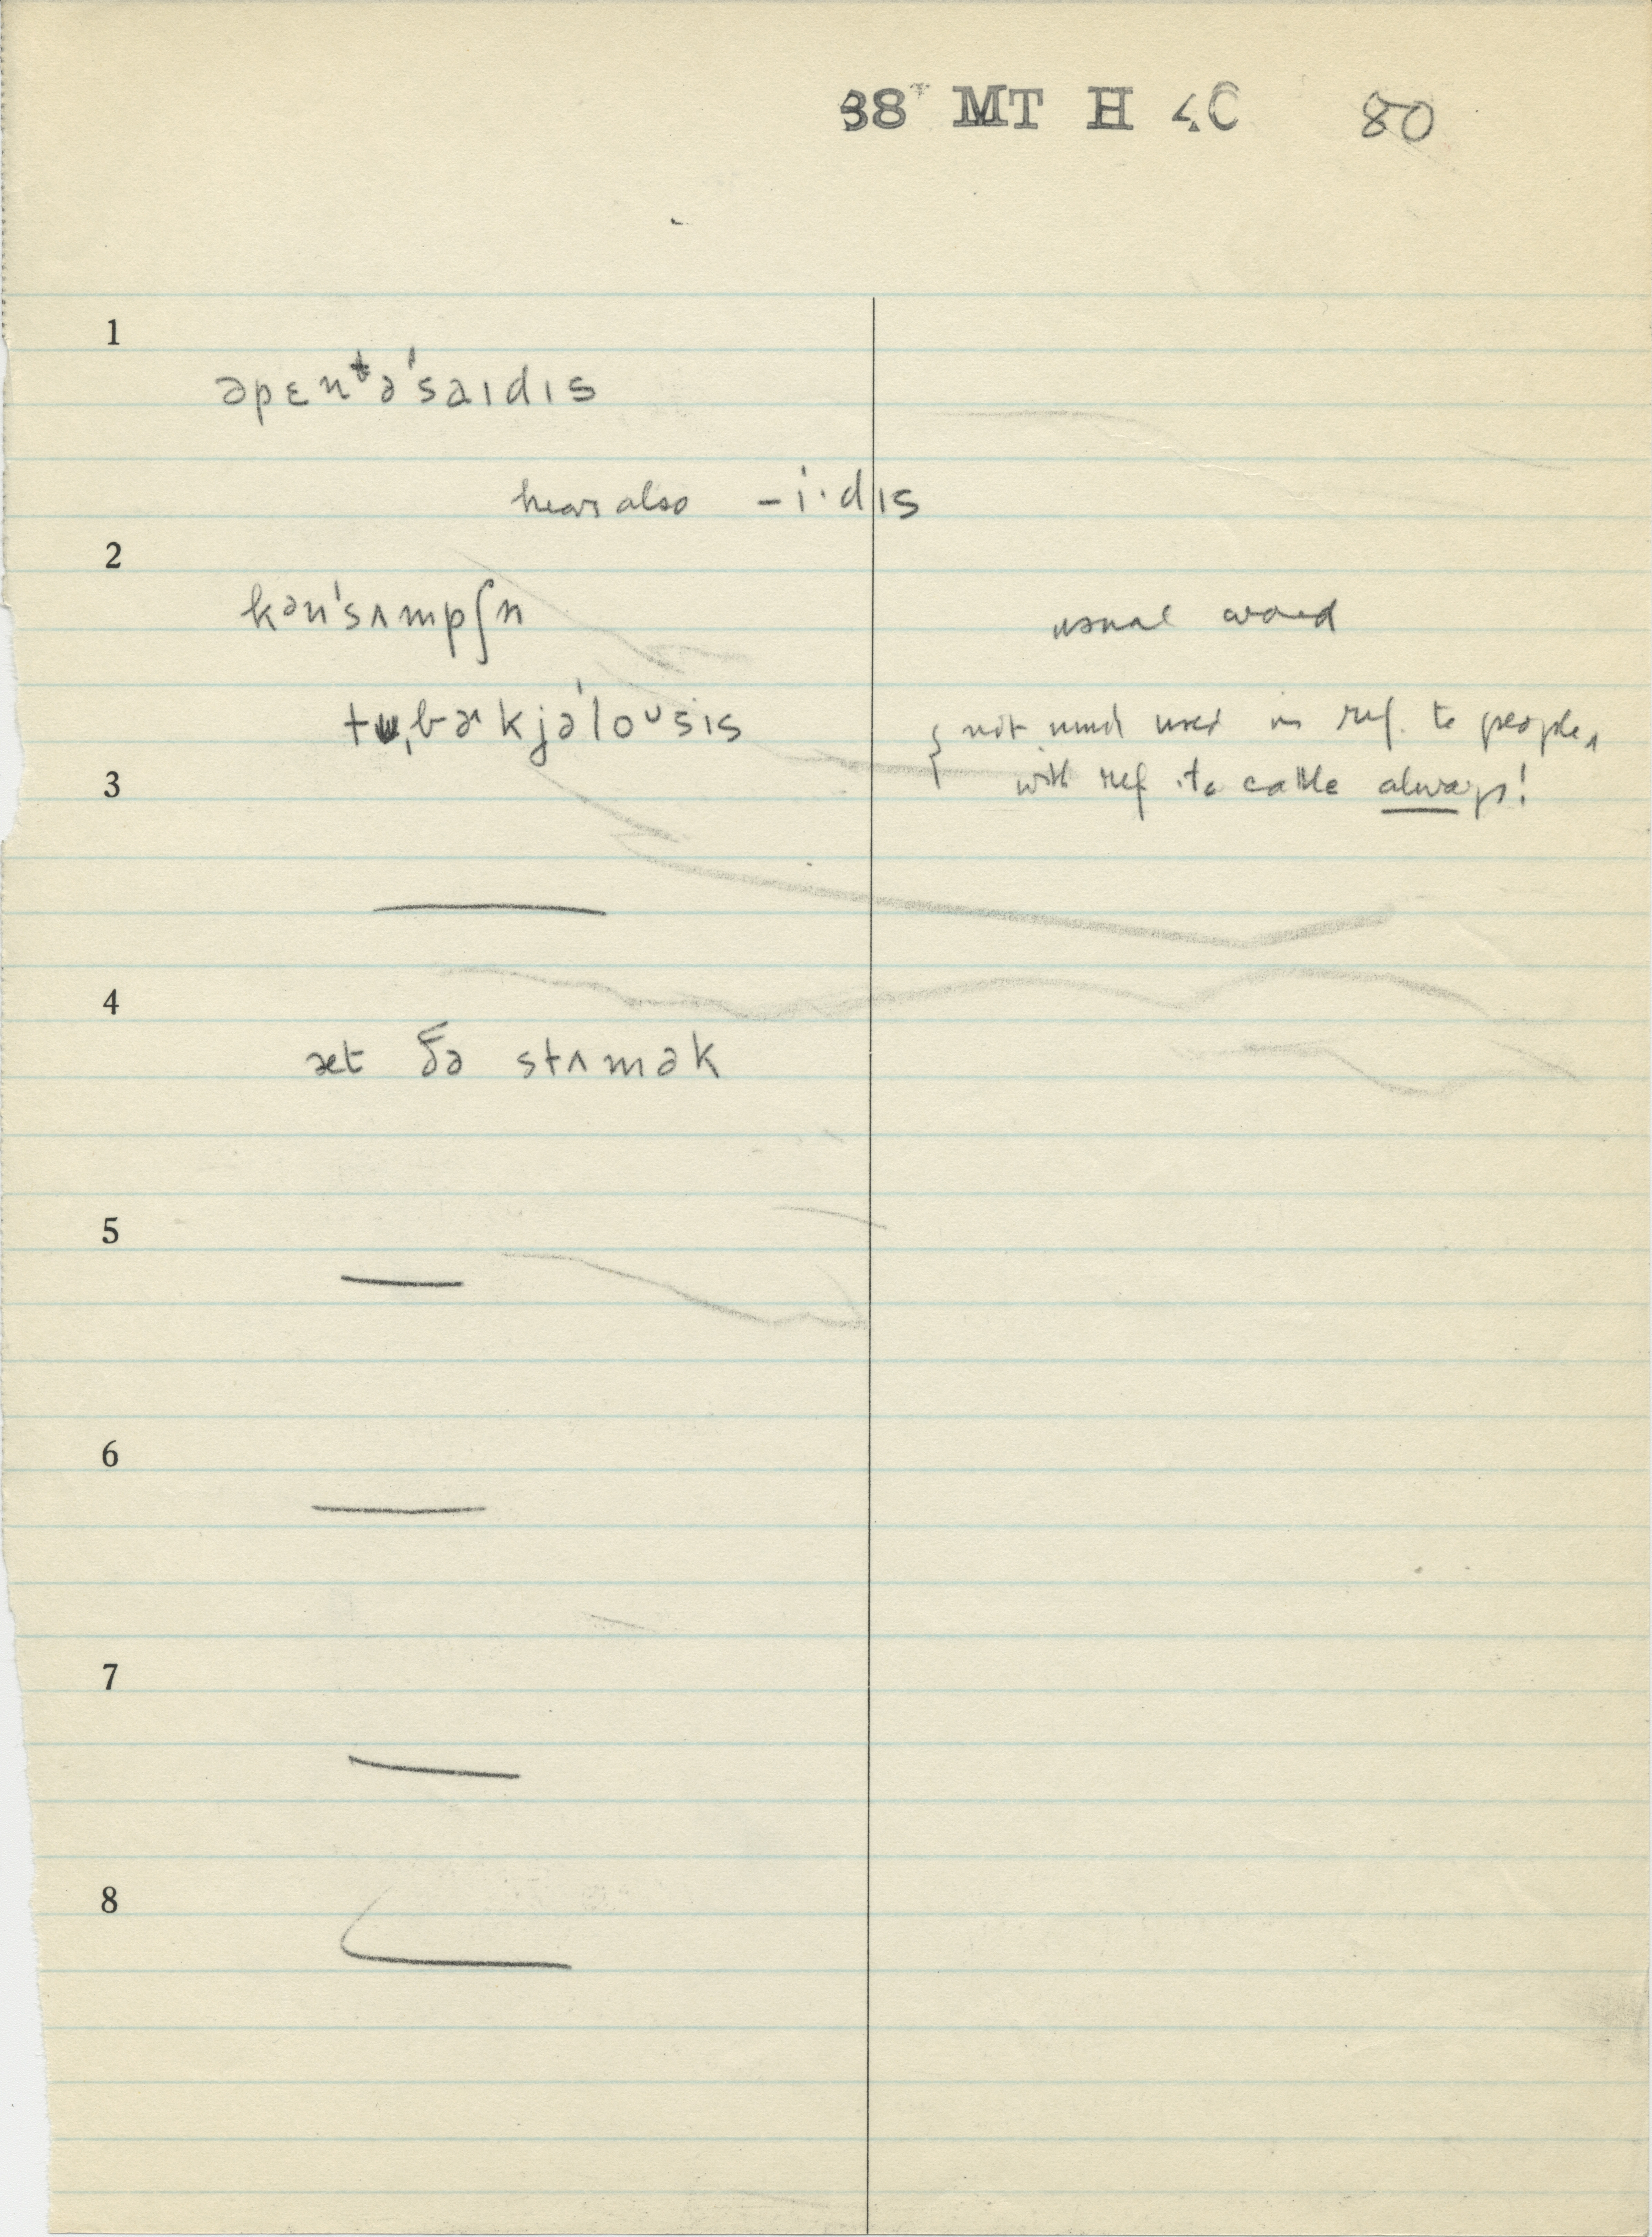 38 MT H 4C 80
1
əpɛnᵗə'saɪdɪs
hear also -i·dɪs
2
kən'sʌmpʃn usual word
tu,bɚkjə'loᴜsɪs { not much used in ref. to people,
3 with ref. to cattle always!
4
æt ðə stʌmək
5
6
7
8